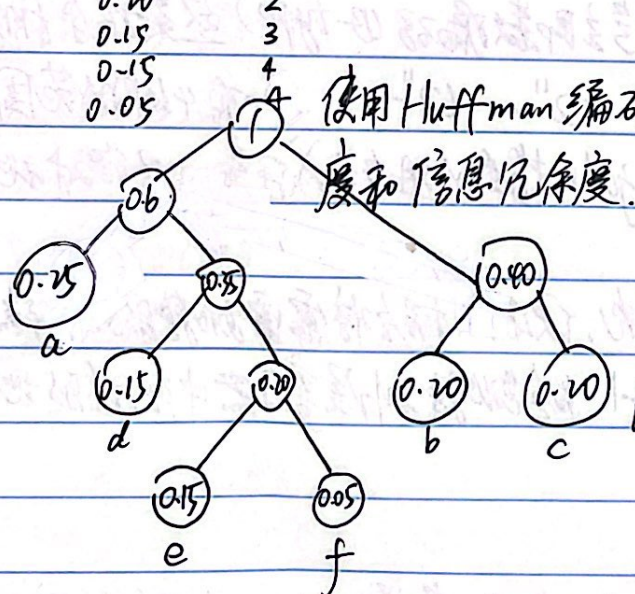 0.20 2
0.15 3
0.15 4
0.05 4 使用Huffman编码
度和信息冗余度.
1
0.6
0.25 0.35 0.40
a
0.15 0.20 0.20 0.20
d b c
0.15 0.05
e f